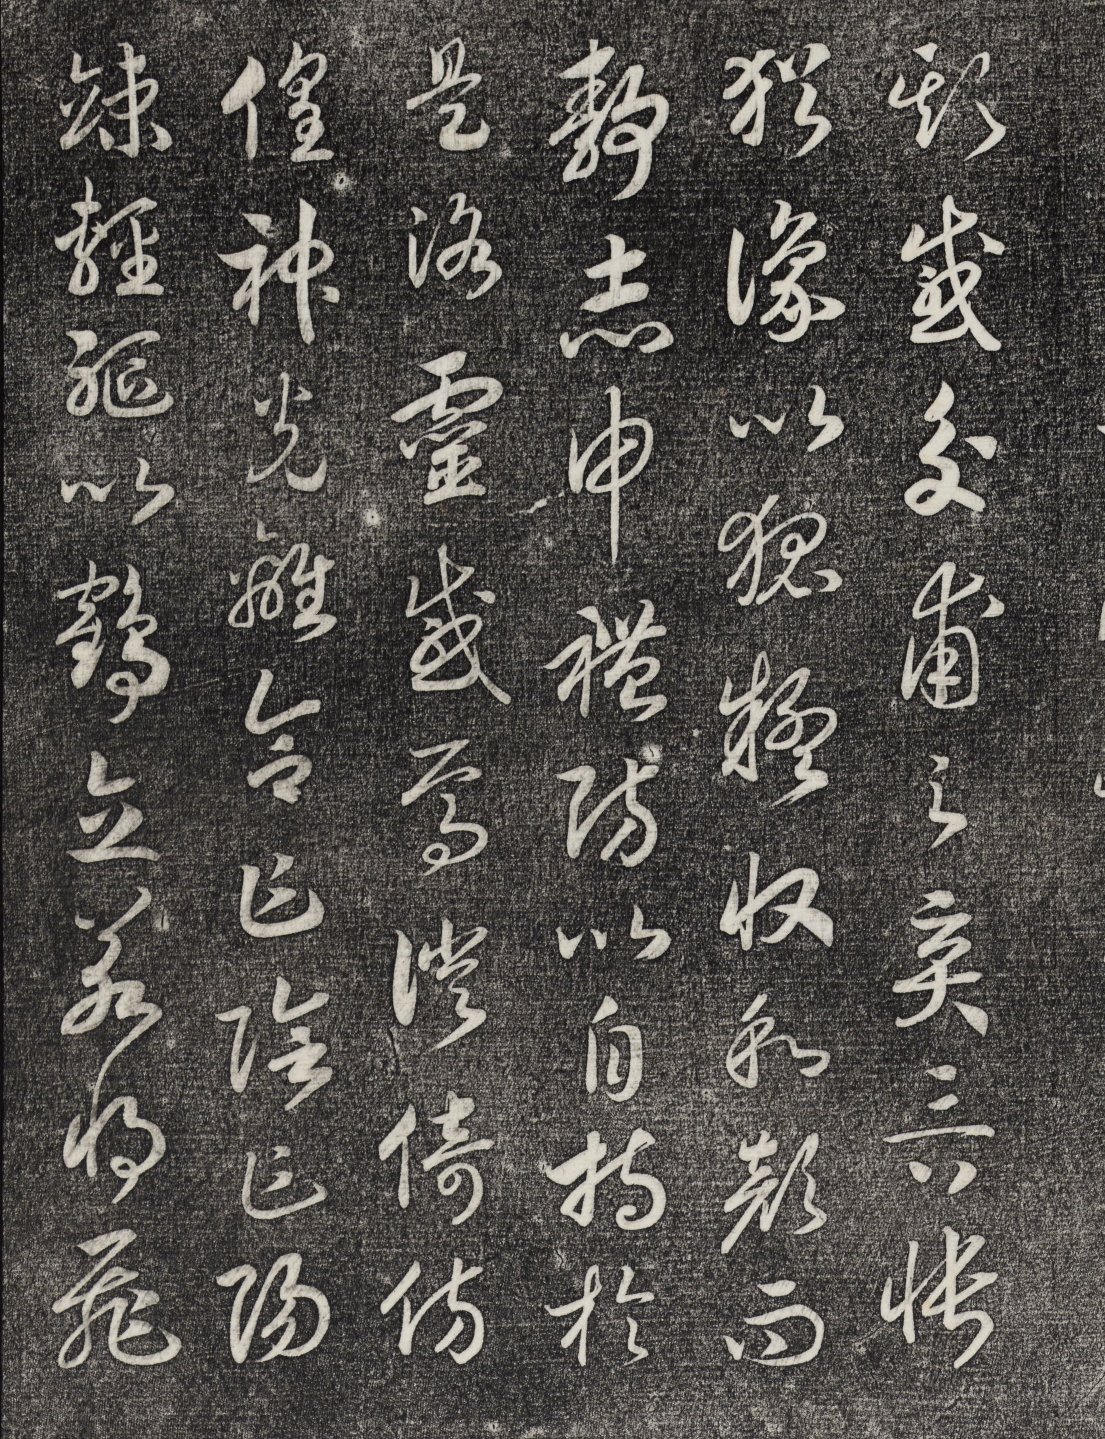 欺感交甫之棄言兮悵
猶豫以狐疑收和顏而
靜志申禮防以自持於
是洛靈感焉徙倚彷
徨神光離合乍陰乍陽
竦輕軀以鶴立若將飛